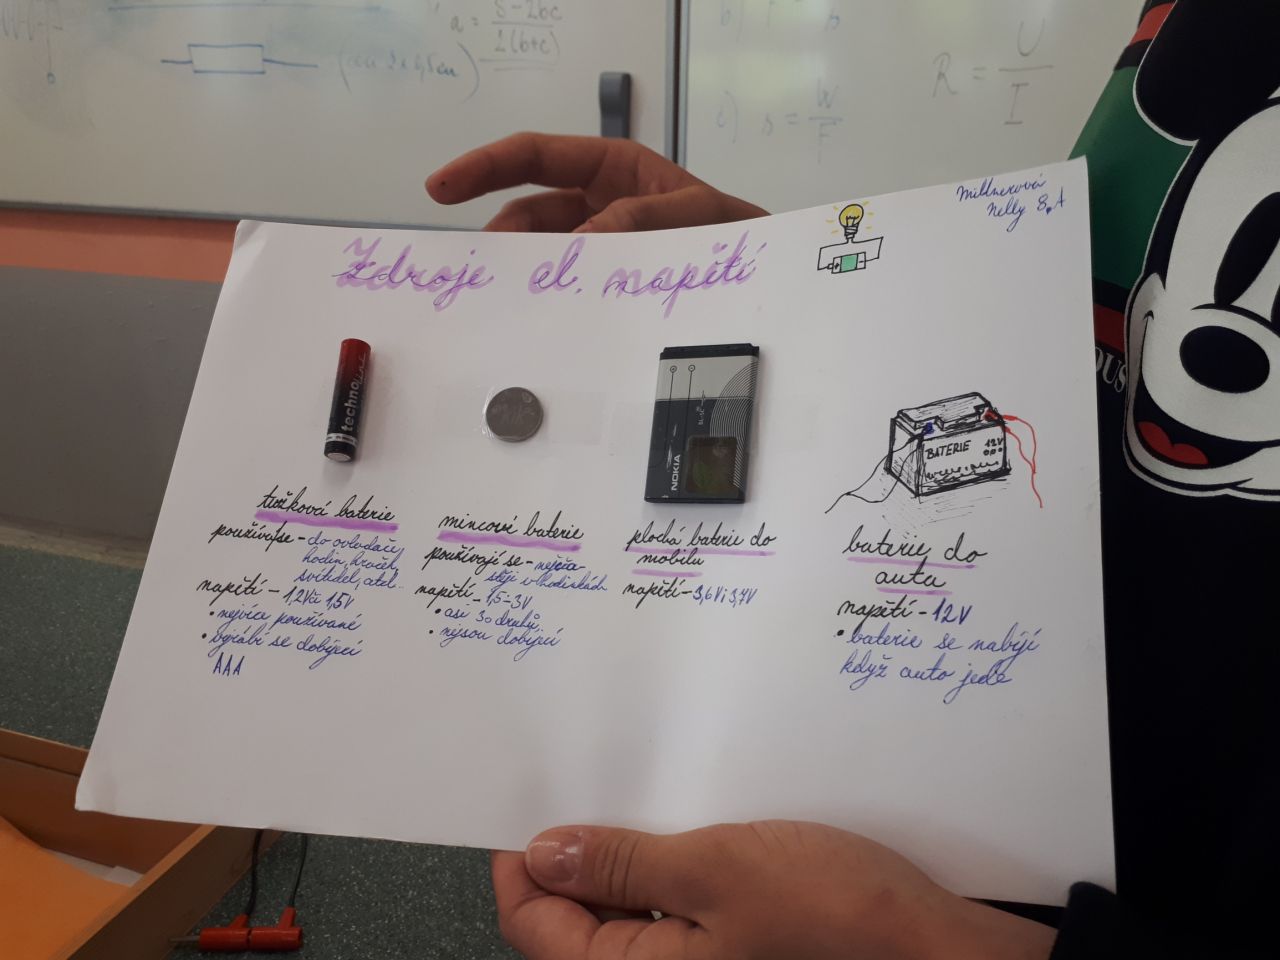 a = s - 2bc / 2(b+c)
R = U / I
c) s = W / F
Millnerová
Nelly 8.A
Zdroje el. napětí
technoline
NOKIA
BL-5C
BATERIE 12V
tužková baterie
používají se - do ovladačů,
hodin, hraček,
svítidel, atd...
napětí - 1,2V či 1,5V
• nejvíce používané
• vyrábí se dobíjecí
AAA
mincové baterie
používají se - nejča-
stěji v hodinkách
napětí - 1,5-3V
• asi 30 druhů
• nejsou dobíjecí
plochá baterie do
mobilu
napětí - 3,6V i 3,7V
baterie do
auta
napětí - 12V
• baterie se nabíjí
když auto jede